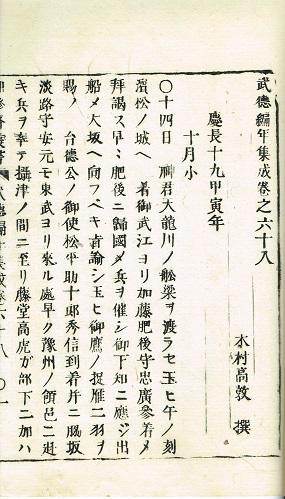 武德編年集成卷之六十八
木村高敦 撰
慶長十九甲寅年
十月小
〇十四日 神君大龍川ノ舩梁ヲ渡ラセ玉ヒ午ノ刻
濵松ノ城ヘ 着御武江ヨリ加藤肥後守忠廣參着メ
拜謁ス早ニ肥後ニ歸國メ兵ヲ催シ御下知ニ應ジ出
船メ大坂ヘ向フベキ旨諭シ玉ヒ御鷹ノ捉雁二羽ヲ
賜ノ 台德公ノ御使松平助十郎秀信到着并ニ脇坂
淡路守安元モ東武ヨリ來ル處早ク豫州ノ領邑ニ赴
キ兵ヲ奉テ攝津ノ間ニ至リ藤堂高虎ガ部下ニ加ハ